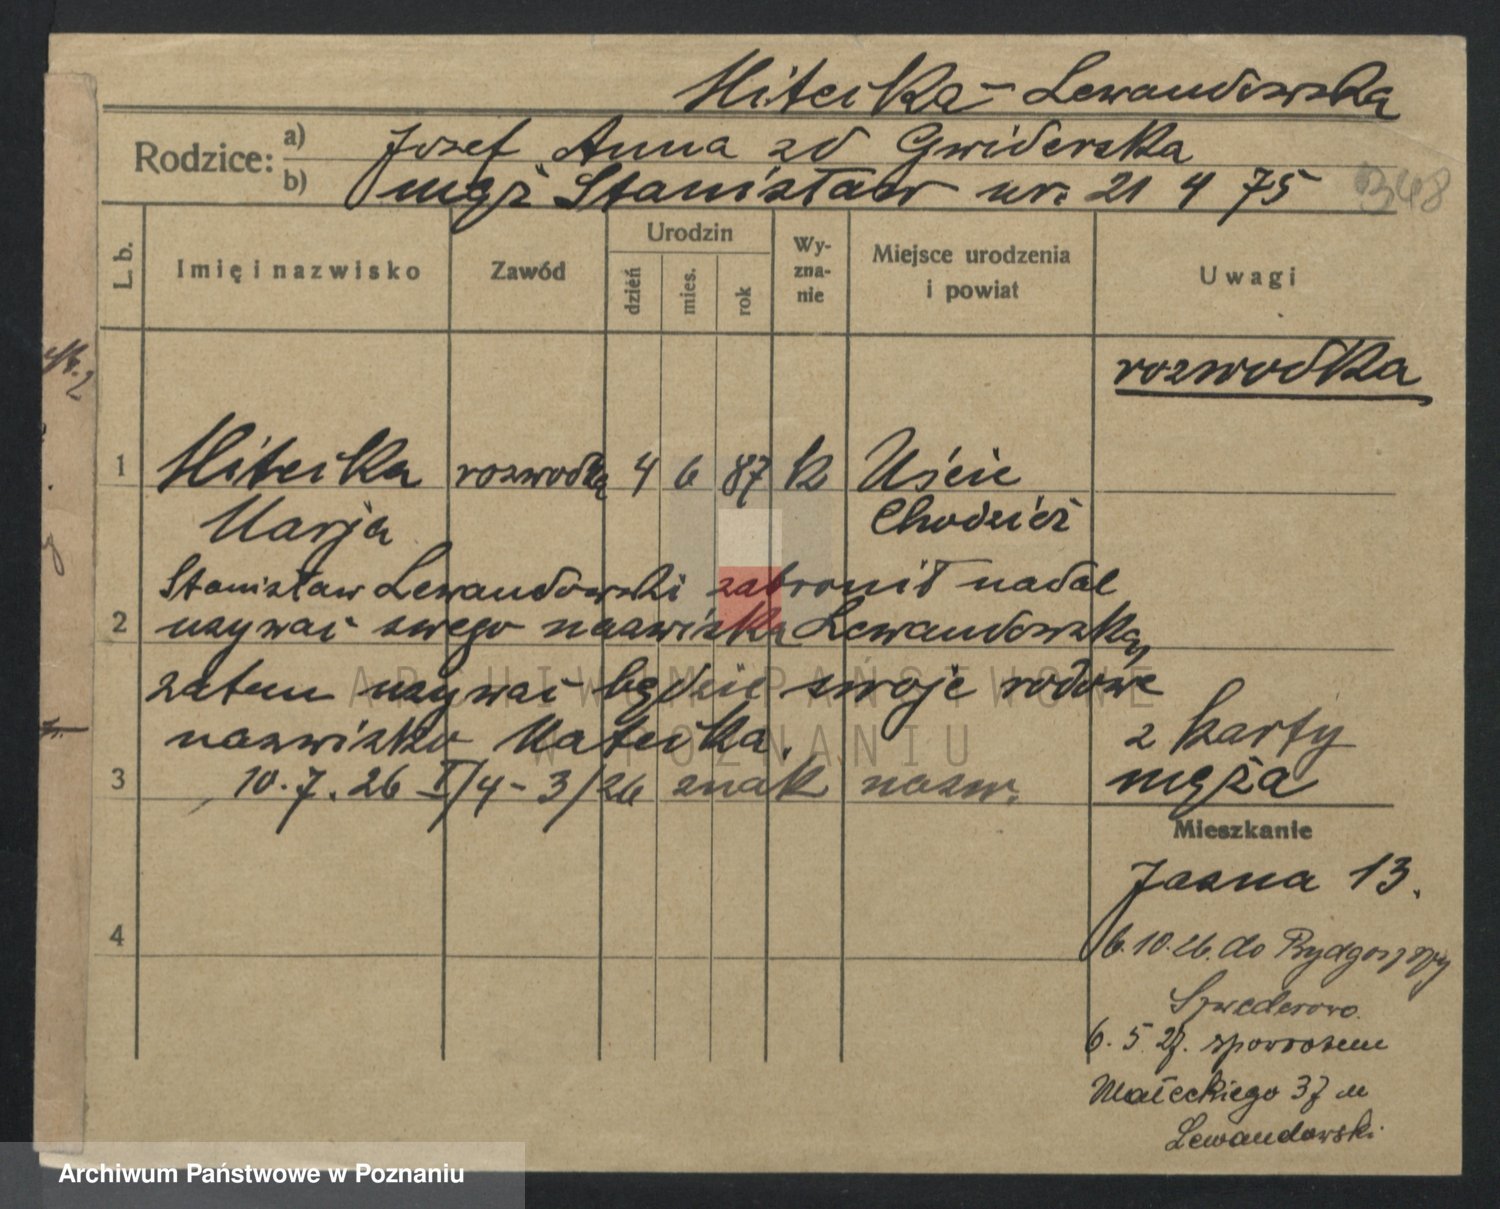 Mitecka - Lewandowska
Rodzice: a) Jozef, Anna zd Gwiderska
b) męż Stanisław ur. 21 4 75
348
L. b.
Imię i nazwisko
Zawód
Urodzin
dzień
mies.
rok
Wy-
zna-
nie
Miejsce urodzenia
i powiat
Uwagi
rozwodka
1 rozwodka 4 6 87 k Ujście
Marja Chodzież
Stanisław Lewandowski zabronił nadal
2 uzywać swego nazwiska Lewandowska,
zatem uzywać będzie swoje rodowe
nazwisko
z karty
męża
3 10.7.26 I/4-3/26 znak nazw.
Mieszkanie
Jasna 13.
4
6.10.26. do Bydgoszczy
Szwederowo.
6.5.27. spowrotem
Małeckiego 37 m
Lewandowski
ARCHIWUM PAŃSTWOWE
W POZNANIU
Archiwum Państwowe w Poznaniu